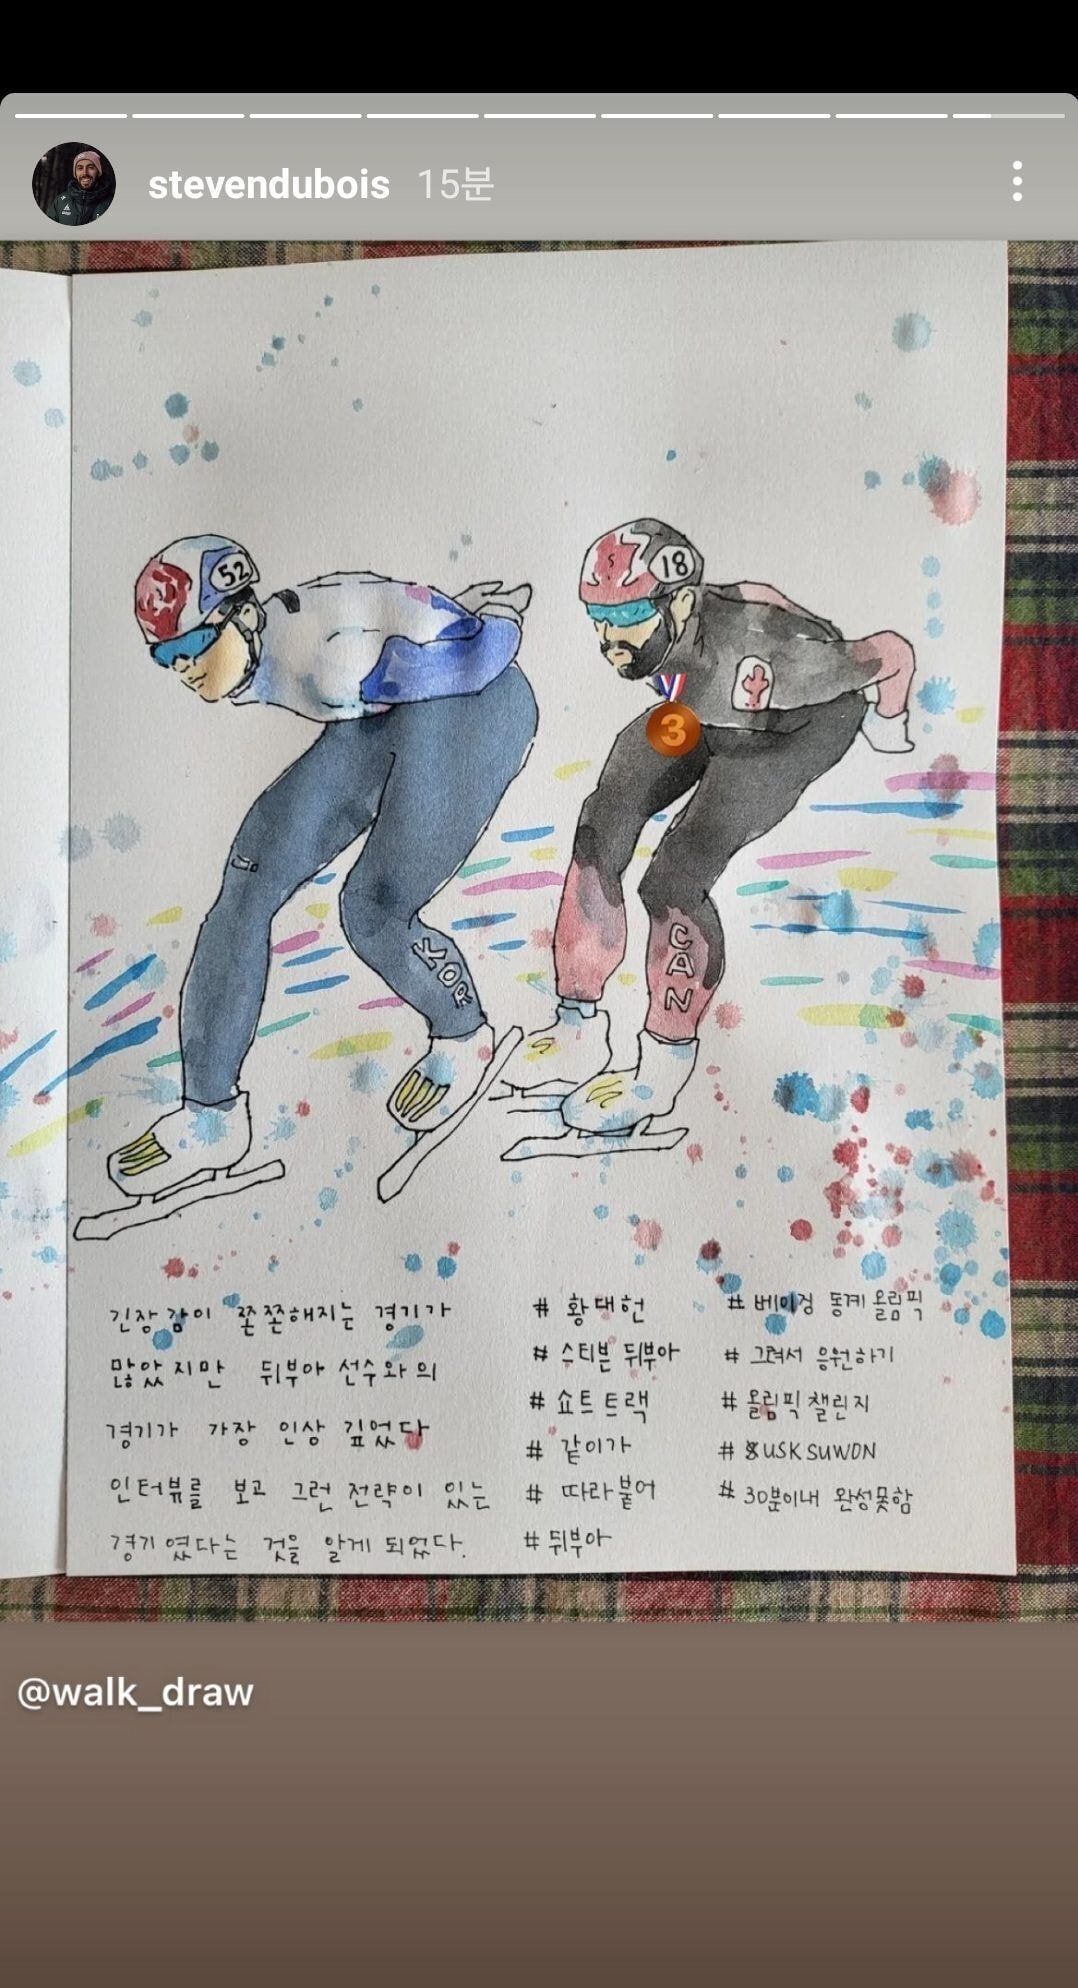 stevendubois 15분
52
18
3
KOR
CAN
긴장감이 쫀쫀해지는 경기가
많았지만 뒤부아 선수와의
경기가 가장 인상 깊었다
인터뷰를 보고 그런 전략이 있는
경기였다는 것을 알게 되었다.
# 황대헌
# 스티븐 뒤부아
# 쇼트트랙
# 같이가
# 따라붙어
# 뒤부아
# 베이징 동계올림픽
# 그려서 응원하기
# 올림픽 챌린지
# USK SUWON
# 30분이내 완성못함
@walk_draw